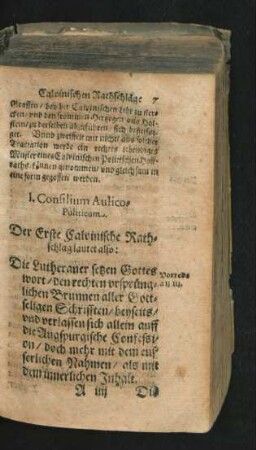 Calvinischen Rathschläge 7
Grossen / bey der Calvinischen Lehr zu
cken / und den frommen Hertzogen auß Hol-
stein / zu derselben abzuführen / sich
get. Unnd zweiffelt mir nicht auß solcher
Tractation werde ein rechts
Muster eines Calvinischen Politischen Hoff-
raths können genommen / und gleichsam in
eine form gegossen werden.
I. Consilium Aulico-
Politicum.
Der Erste Calvinische Rath-
schlag lautet also:
Die Lutheraner setzen Gottes
wort / den rechten ursprüng-
lichen Brunnen aller Gott-
seligen Schrifften / beyseits /
und verlassen sich allein auff
die Augspurgische Confessi-
on / doch mehr mit dem eus-
serlichen Nahmen / als mit
dem innerlichen Inhalt.
A iiij Die